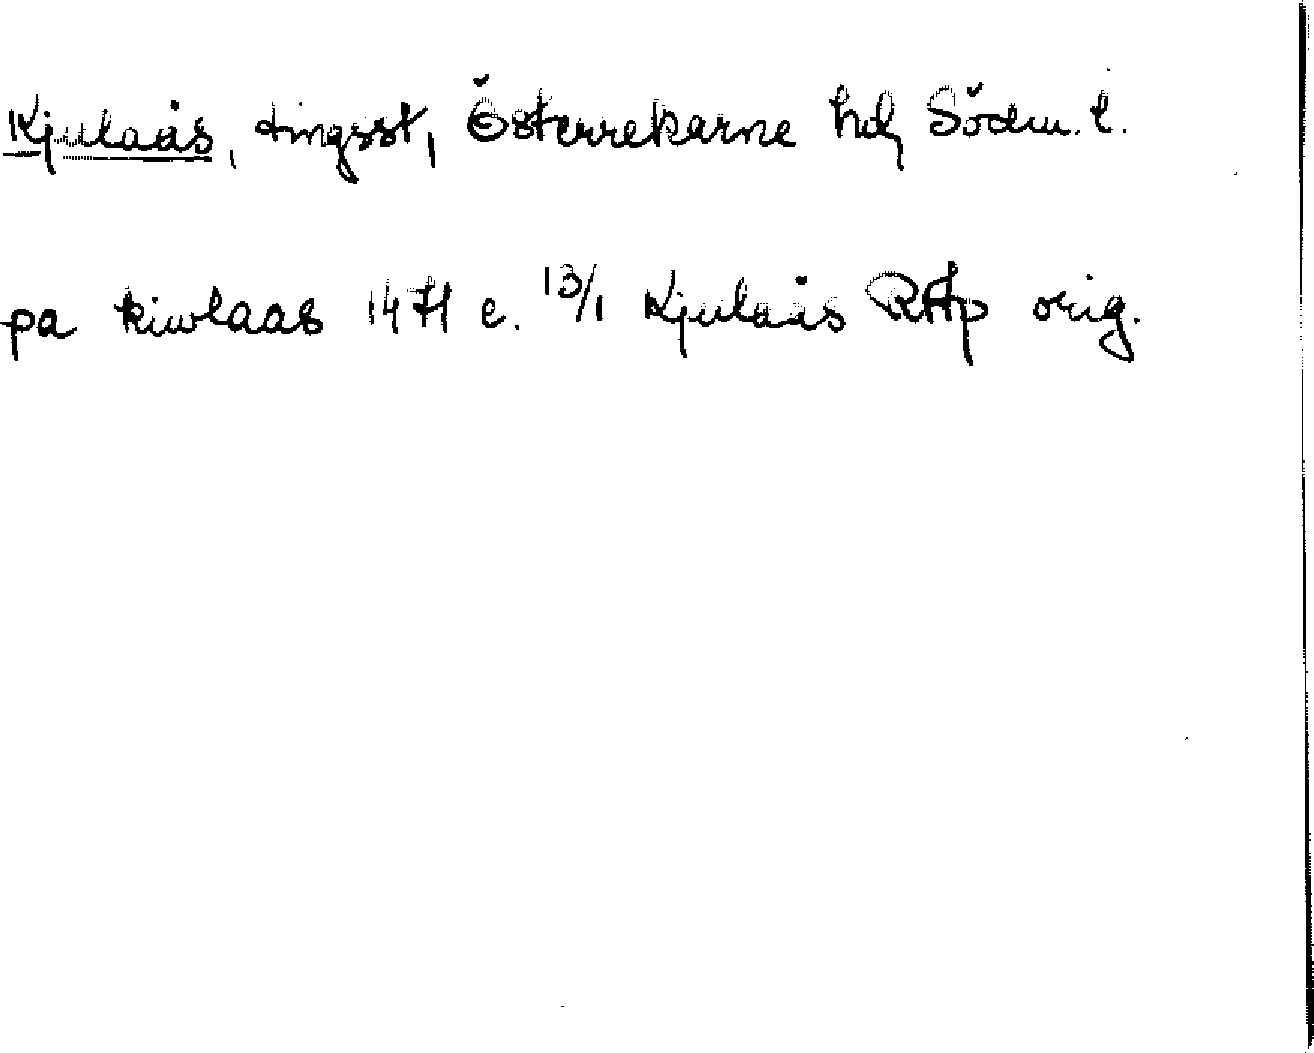 Kjulaås, tingsst, Österrekarne hd, Södm. l.
pa kiwlaas 1471 e. 13/1 Kjulaås RAp orig.